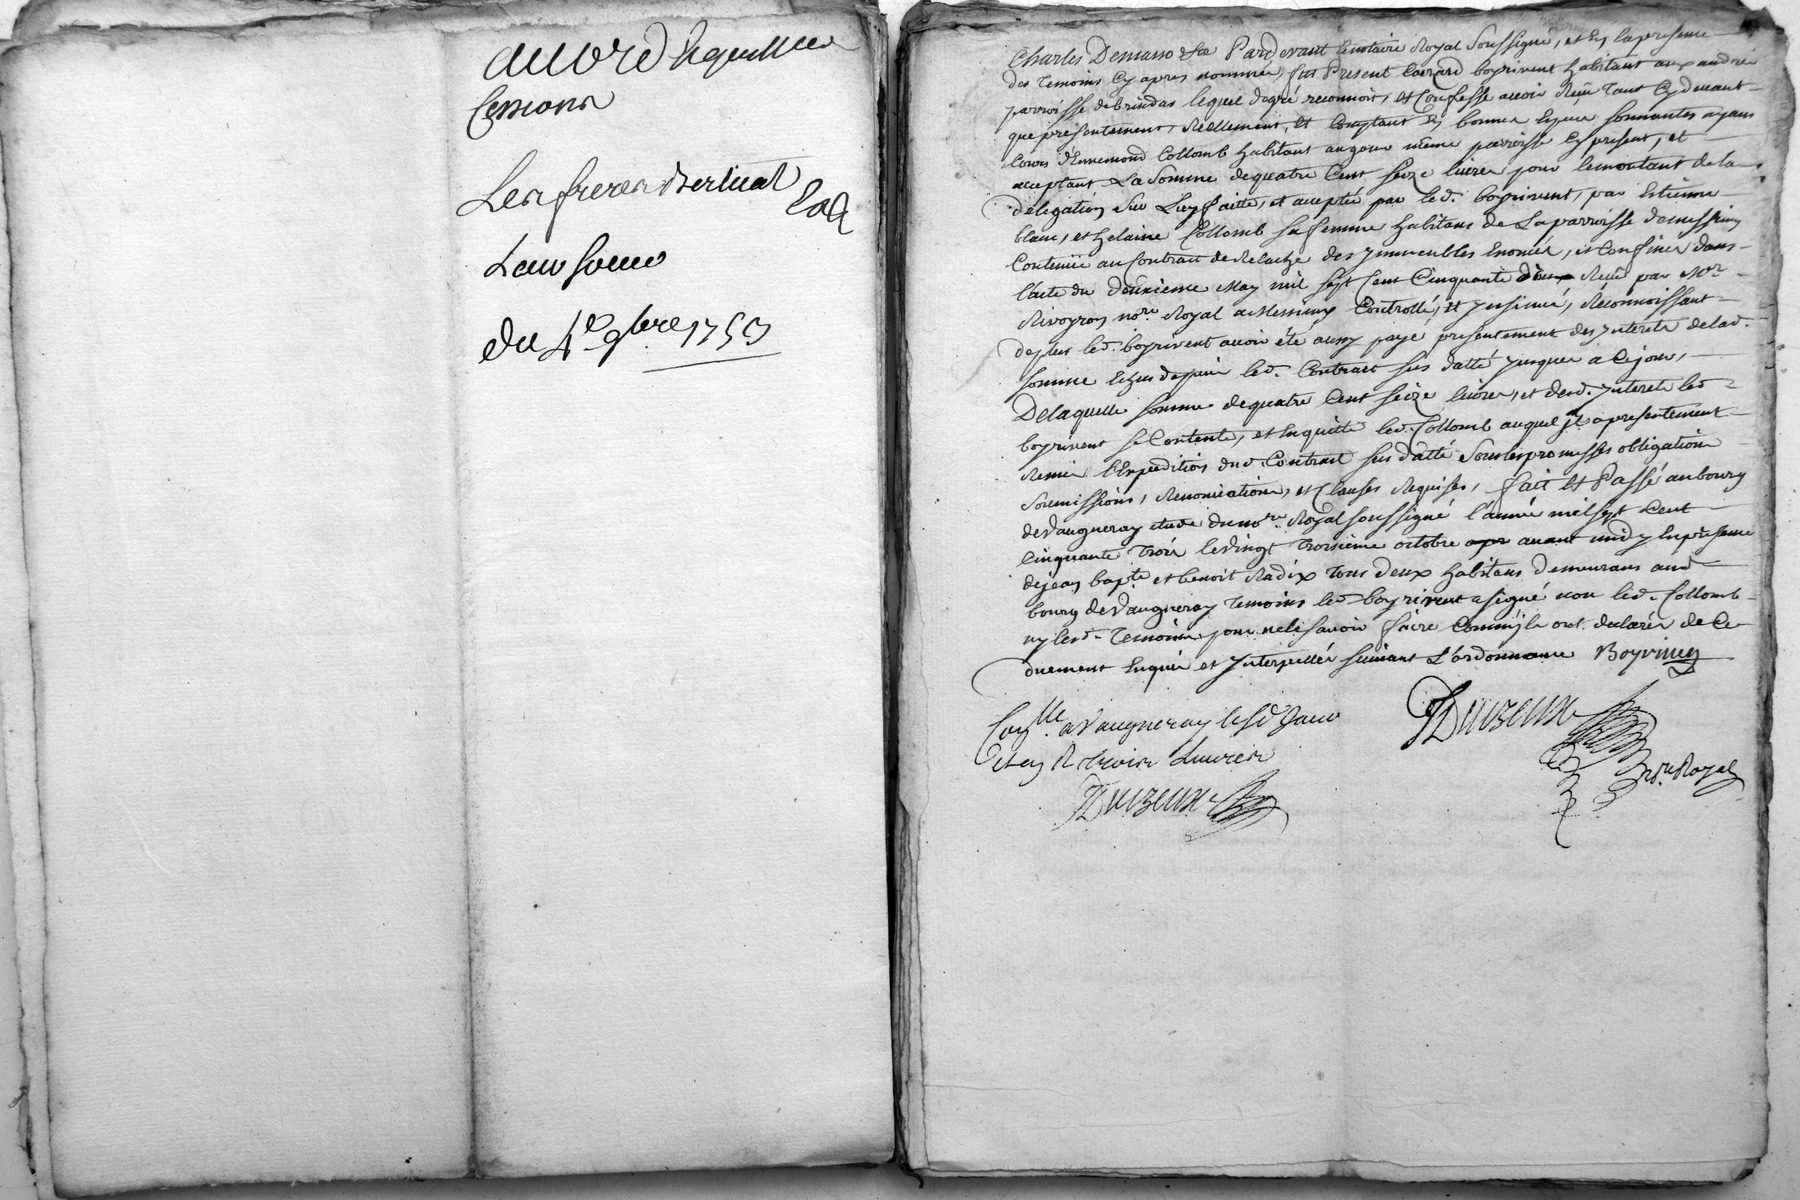 accord & quittance
Cessions
Les freres Bertuat
Leur soeur
du 4e 9bre 1753
Pardevant le notaire Royal soussigné, et en la presence
des temoins cy apres nommés, fut Present boyrivent habitant aux andrés
parroisse de brindas lequel degré reconnoit, et Confesse avoir Reçu tant cy devant
que presentement, Reellement, et Comptant en bonnes Especes sonnantes ayans
Cours d'Ennemond Collomb habitant au même parroisse cy present, et
acceptant La Somme de quatre Cent seize livres pour le montant de la
délégation sur Luy faitte, et acceptée par led. boyrivent, par Estienne
blanc, et helaine Collomb sa femme habitans de La parroisse de messimy
Contenüe au Contract de Relache des jmmeubles Enoncés, et Confinés dans
l'acte du deuxieme May mil sept Cent Cinquante deux Reçu par Mre
Rivoyron nore Royal a Messimy Controllé, et jnsinué, Reconnoissant
deplus led. boyrivent avoir été aussy payé presentement des jnterets de lad.
somme Echus depuis led. Contract sus datté jusques a Cejour,
De laquelle somme de quatre Cent seize livres, et desd. jnterets led.
boyrivent se Contente, et Enquitte led. Collomb auquel jl a presentement
Remis l'Expedition dud. Contract sus datté Sous les promesses obligations
soumissions, Renonciations, et Clauses Requises, fait et Passé au bourg
de vaugneray etude du nore Royal soussigné l'année mil sept Cent
Cinquante trois le vingt troisième octobre avant midy En presence
de jean bapte et benoit Radix tous deux habitans demeurans aud.
bourg de vaugneray temoins led. boyrivent a signé non led. Collomb
ny lesd. temoins pour ne le savoir faire Comm'jls ont declarés de Ce
duement Enquis et jnterpellés suivant L'ordonnance Boyriven
Conlle a Vaugneray le sd. jour
et an R trois Livres
Duizeux
nore Royal
Duizeux